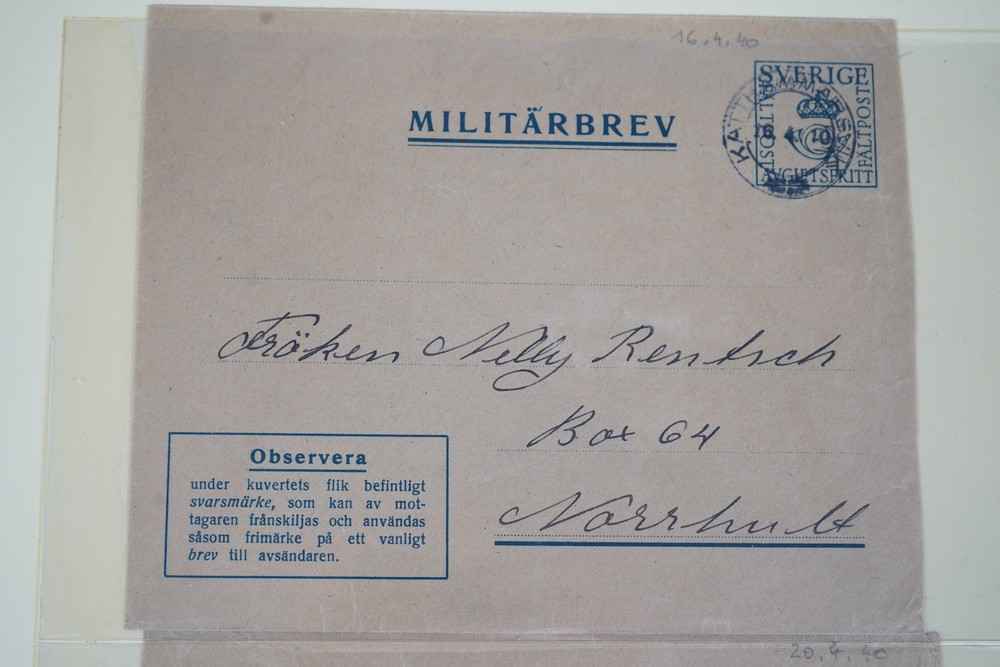 16.4.40
SVERIGE
FÄLTPOST
FÄLTPOST
AVGIFTSFRITT
KATTHAMMARSVIK
MILITÄRBREV
Fröken Nelly Rentsch
Box 64
Norrhult
Observera
under kuvertets flik befintligt
svarsmärke, som kan av mot-
tagaren frånskiljas och användas
såsom frimärke på ett vanligt
brev till avsändaren.
20.4.40